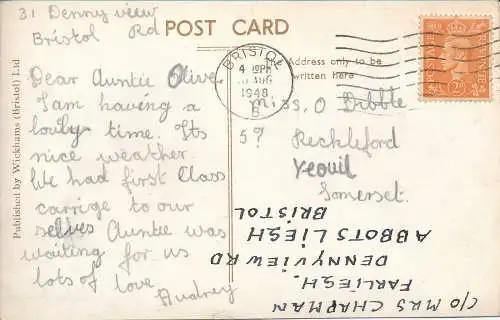 31 Dennyview
Rd
Bristol
Dear Auntie Olive.
I am having a
louly time. Its
nice weather.
We had first Class
carrige to our
selves Auntie was
waiting for us
lots of love
Audrey
POST CARD
Address only to be
written here
BRISTOL
4 15PM
AUG
1948
B
Miss. O Dibble
5?
Reckleford
Yeovil
Somerset.
C/O MRS CHAPMAN
FARLIESH.
DENNYVIEW RD
ABBOTS LIESH
BRISTOL
Published by Wickhams (Bristol) Ltd